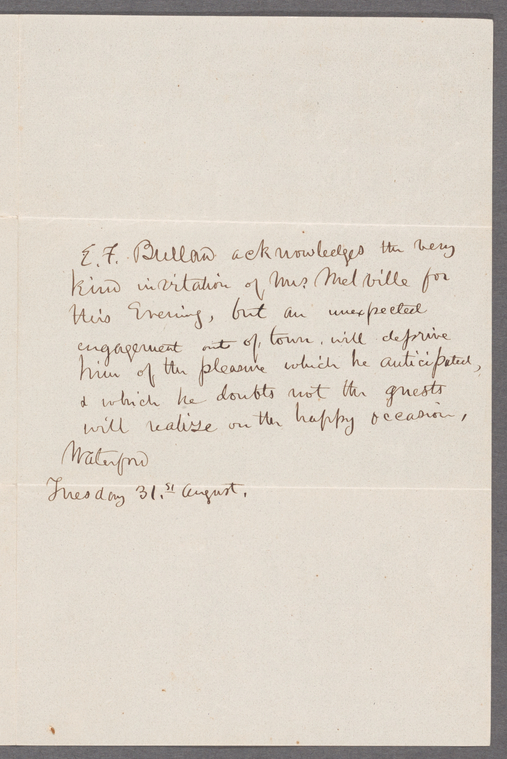 E. F. Bullard acknowledges the very
kind invitation of Mrs. Melville for
this Evening, but an unexpected
engagement out of town, will deprive
him of the pleasure which he anticipated,
& which he doubts not the guests
will realize on the happy occasion,
Waterford
Tuesday 31.st August.